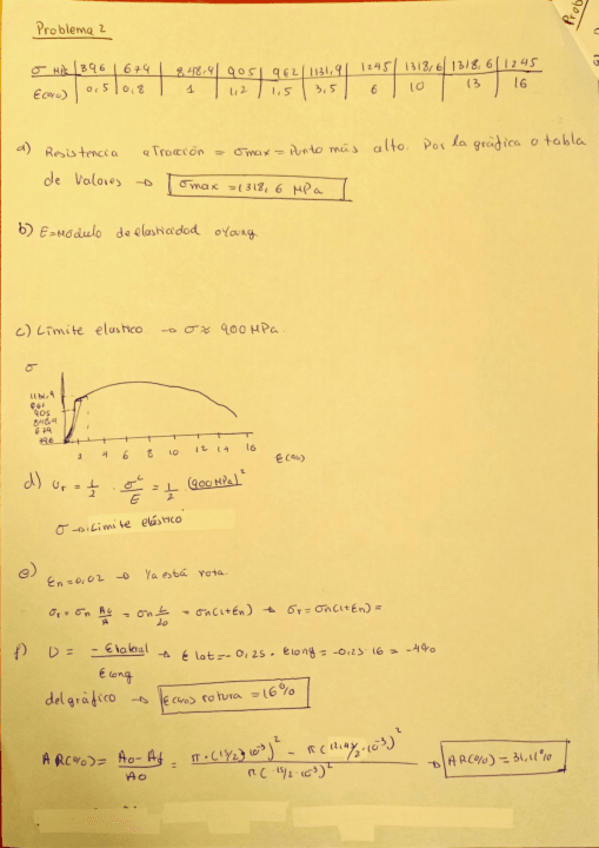 Problema 2
Prob
σ MPa | 396 | 679 | 848,4 | 905 | 962 | 1131,9 | 1245 | 1318,6 | 1318,6 | 1245
ε(%) | 0,5 | 0,8 | 1 | 1,2 | 1,5 | 3,5 | 6 | 10 | 13 | 16
a) Resistencia a Tracción = σmax = Punto más alto. Por la gráfica o tabla
de Valores → σmax = 1318,6 MPa
b) E = Módulo de elasticidad o Yang
c) Límite elastico → σ ≈ 900 MPa.
σ
1131,9
905
848,4
679
396
2 4 6 8 10 12 14 16
ε(%)
d) Ur = 1/2 · σ²/E = 1/2 (900 MPa)²
σ → Límite elástico
e) εn = 0,02 → Ya está rota.
σr = σn A0/A = σn L/L0 = σn(1+εn) → σr = σn(1+εn) =
f) υ = - ε lateral / ε long → ε lat = -0,25 · ε long = -0,25 · 16 = -4%
del gráfico → ε(%) rotura = 16%
AR(%) = A0 - Af / A0 = → AR(%) = 31,11%